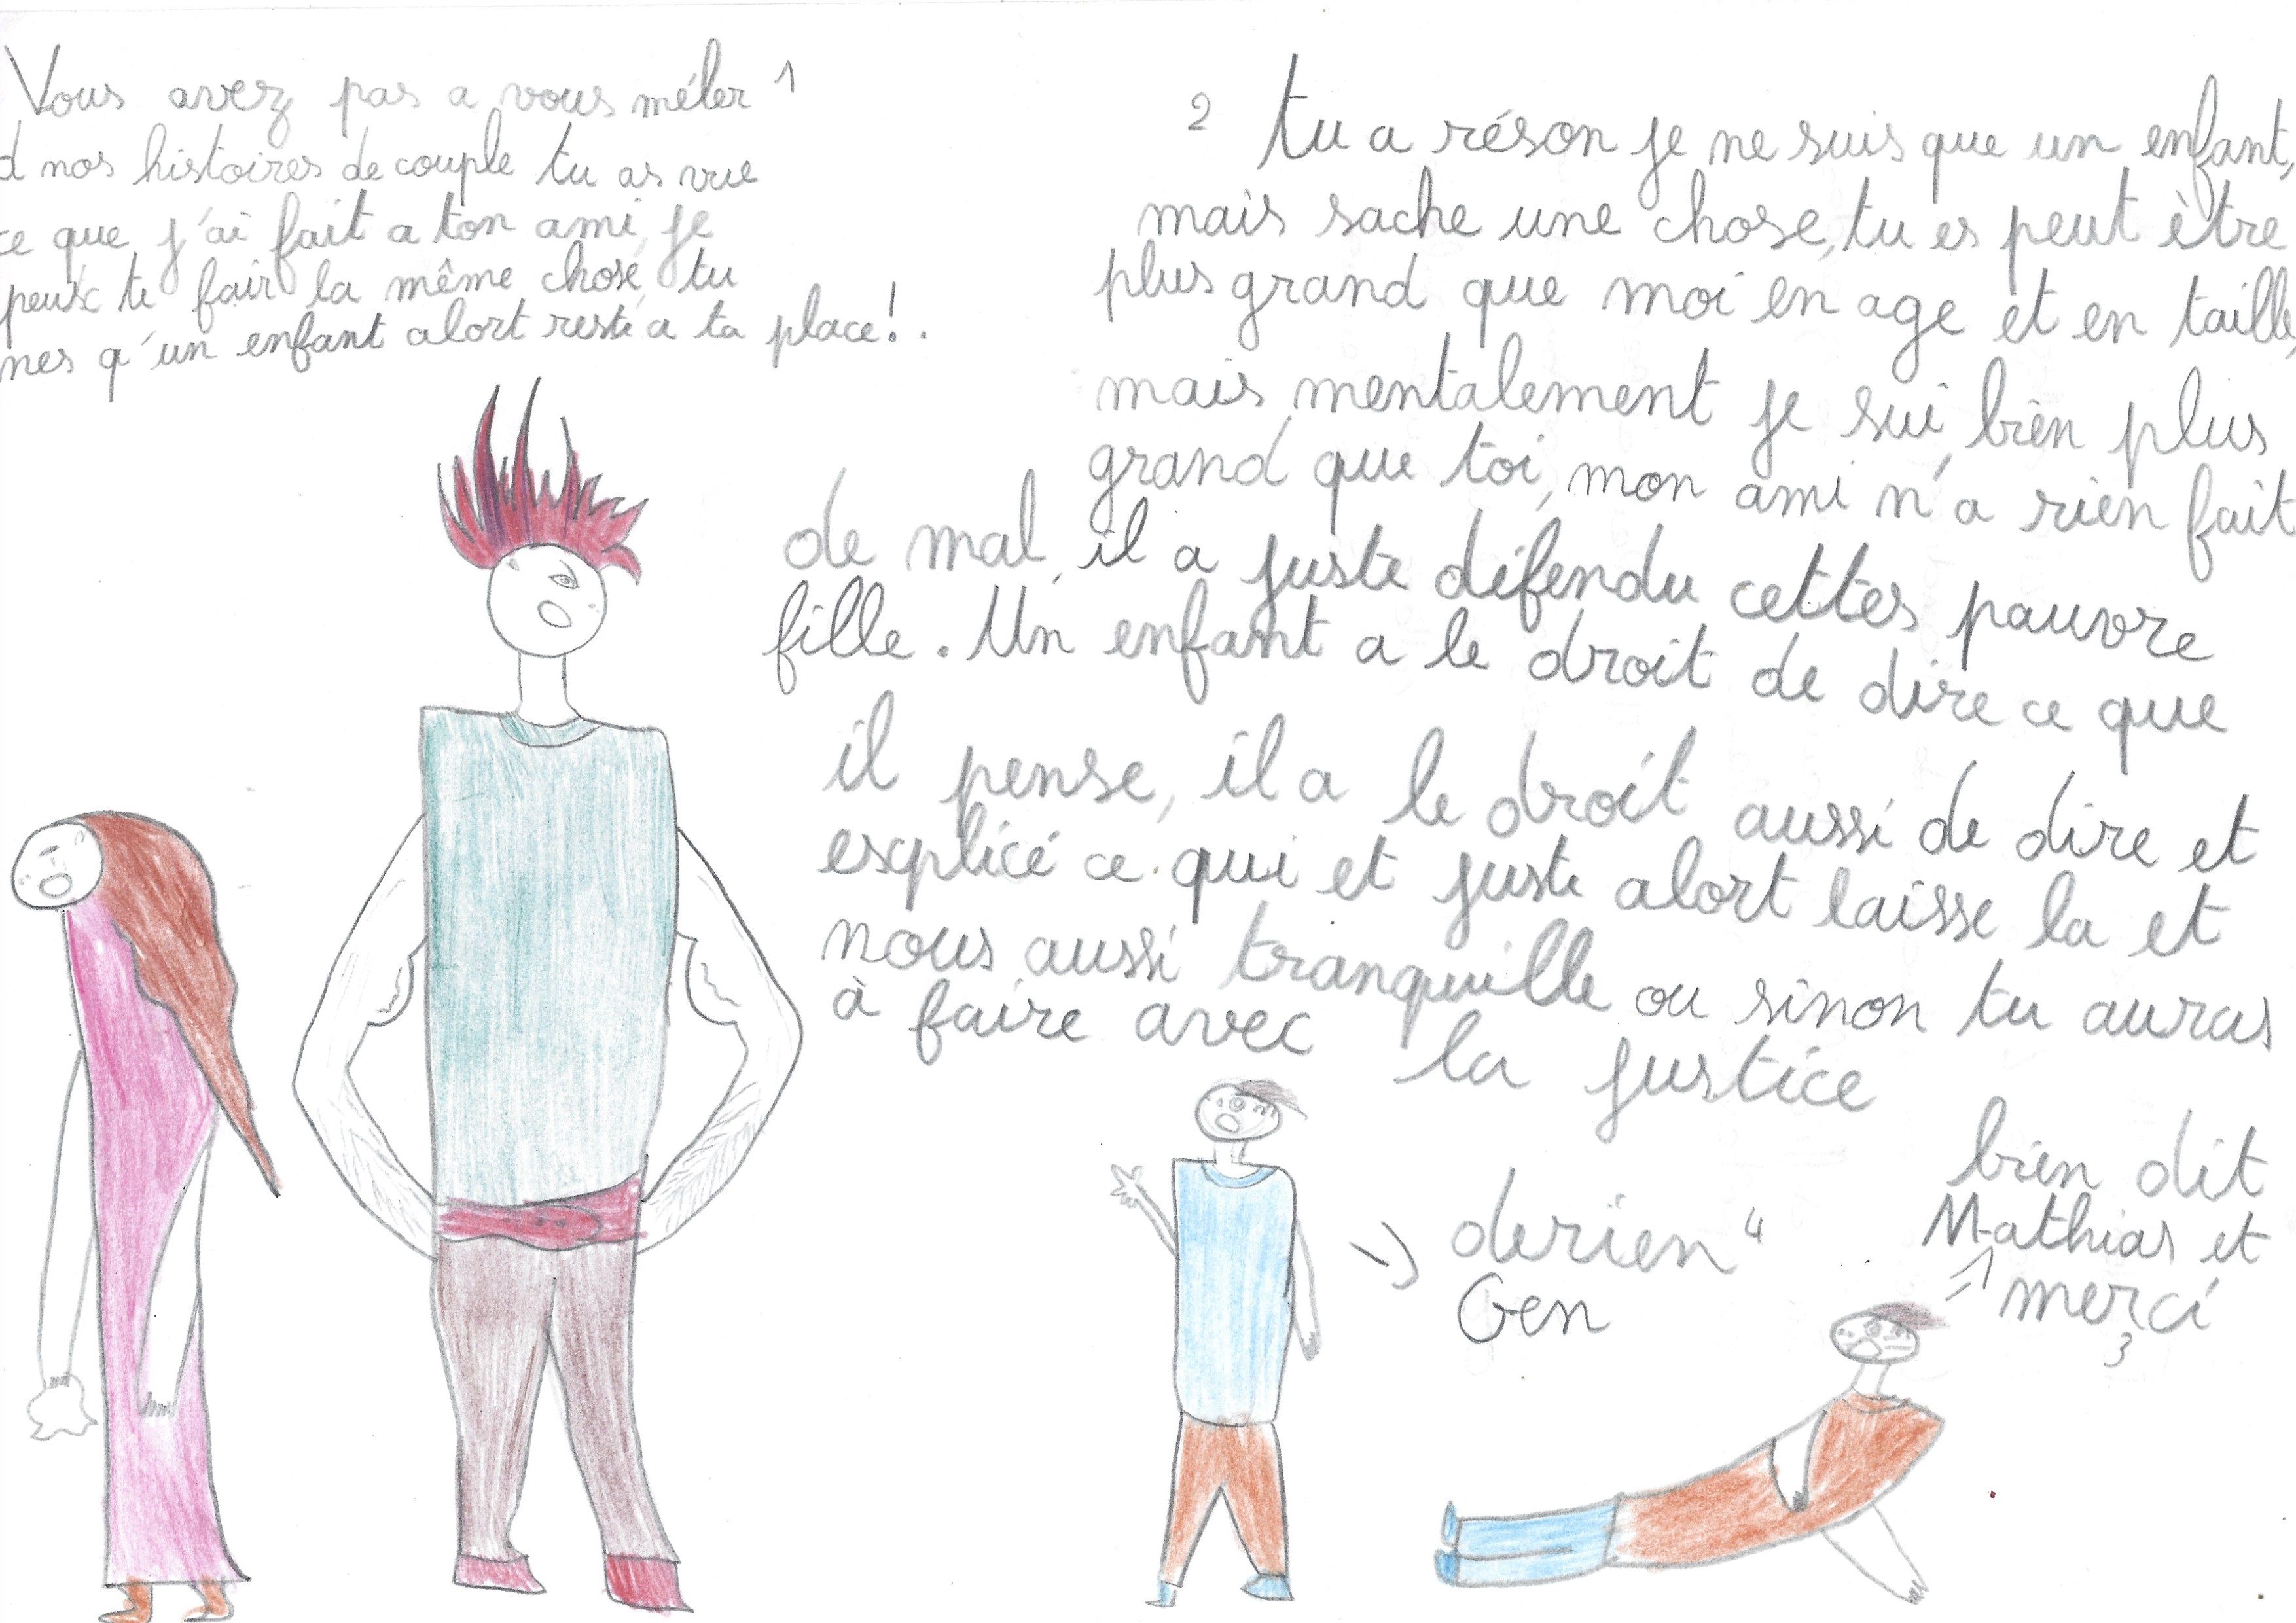 Vous avez pas a vous méler 1
d nos histoires de couple tu as vue
ce que j'ai fait a ton ami, je
peusc te fair la même chose, tu
nes q'un enfant alort reste a ta place!.
2 tu a réson je ne suis que un enfant,
mais sache une chose, tu es peut être
plus grand que moi en age et en taille,
mais mentalement je sui bien plus
grand que toi, mon ami n'a rien fait
de mal, il a juste défendu cettes pauvre
fille. Un enfant a le droit de dire ce que
il pense, il a le droit aussi de dire et
esplicé ce qui et juste alort laisse la et
nous aussi tranquille ou sinon tu auras
à faire avec la justice
bien dit
Mathias et
merci
3
derien 4
Gen